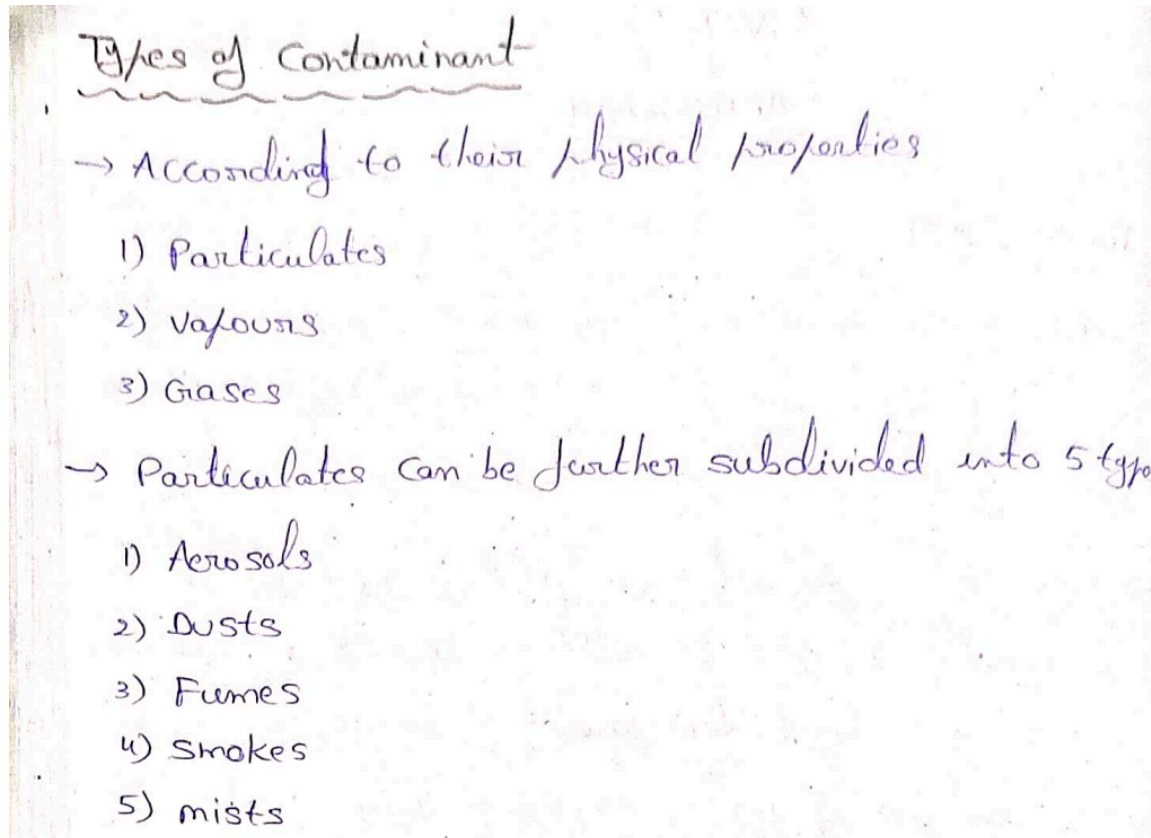 Types of Contaminant
→ According to their physical properties
1) Particulates
2) Vapours
3) Gases
→ Particulates can be further subdivided into 5 typ
1) Aerosols
2) Dusts
3) Fumes
4) Smokes
5) mists